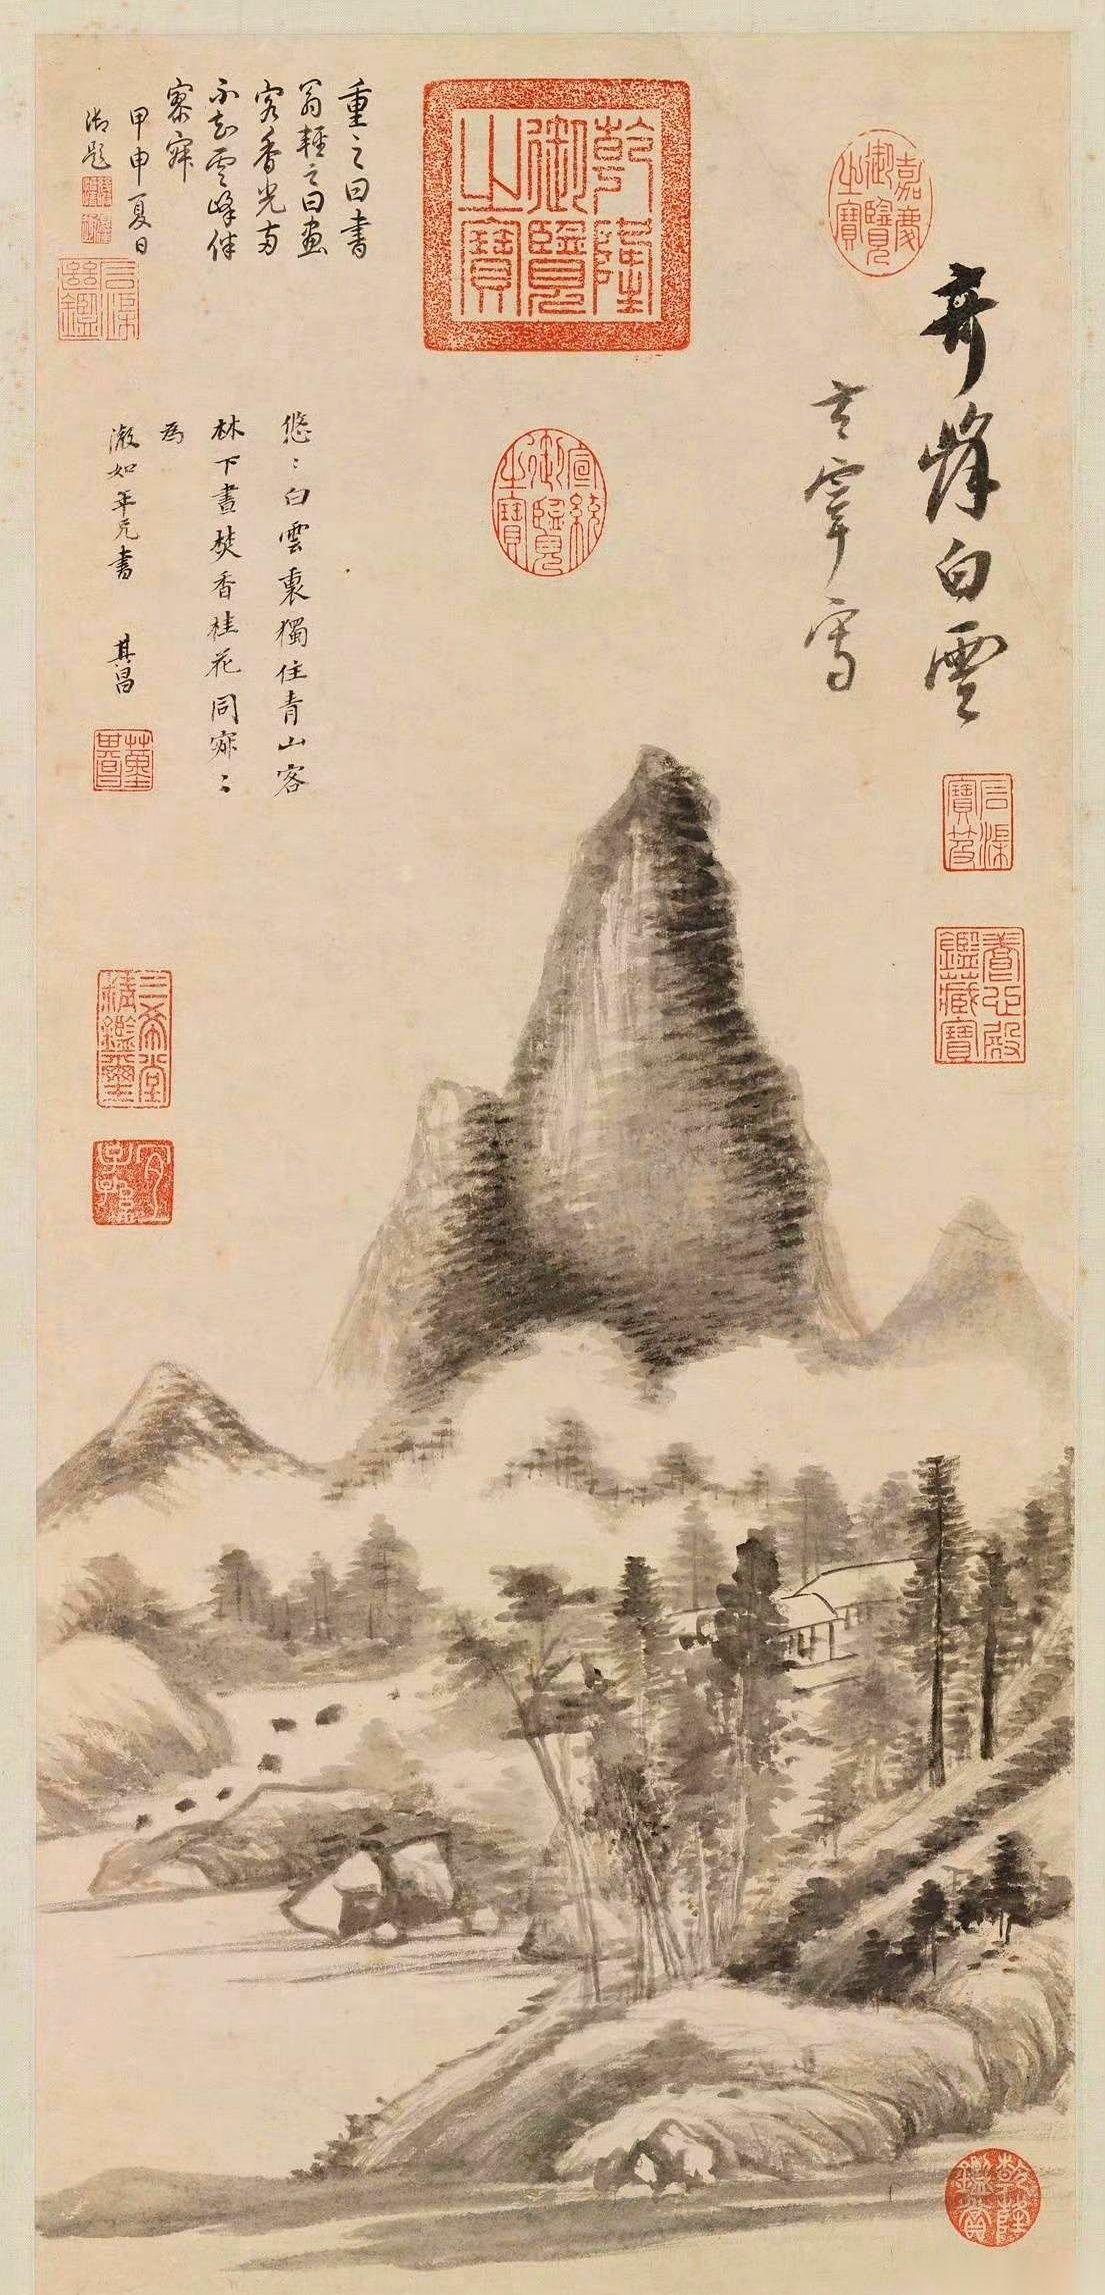 奇峰白雲
玄宰寫
悠〻白雲裏獨住青山客
林下晝焚香桂花同寂〻
為
漵如年兄書 其昌
重之曰書
翁輕之曰畫
客香光齋
不知雲峰伴
寂寂
甲申夏日
御題
乾隆御覽之寶
嘉慶御覽之寶
宣統御覽之寶
石渠寶笈
養心殿鑑藏寶
三希堂精鑑璽
宜子孫
乾隆鑑賞